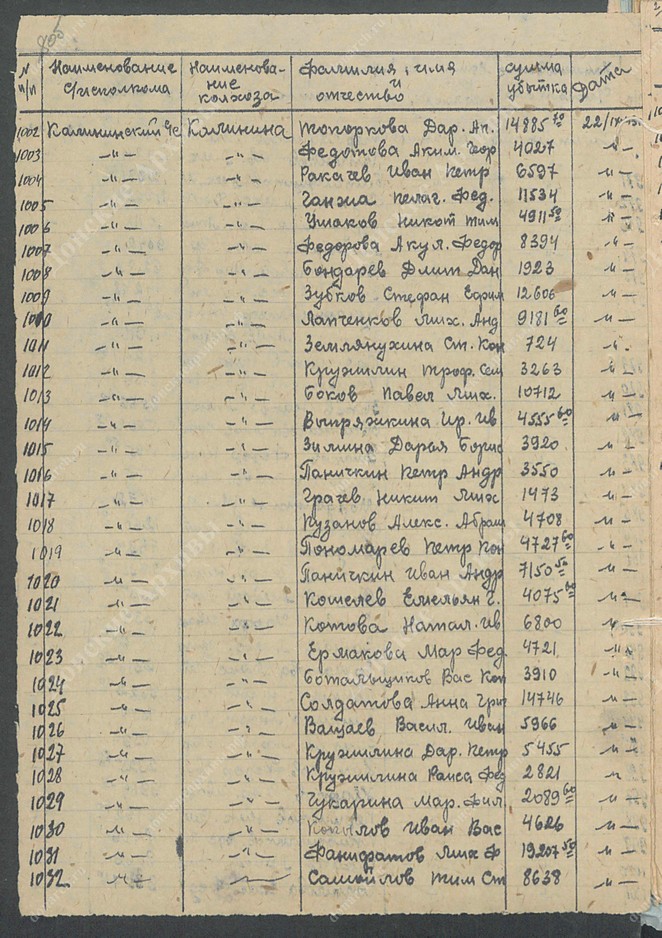 N п/п Наименование с/исполкома Наименование колхоза Фамилия, имя и отчество Сумма убытка Дата
1002 Калининский Калинина Топоркова Дар. Ап. 14885 70 22/IV
1003 -"- -"- Федотова Аким. Егор 4027 -"-
1004 -"- -"- Ракачев Иван Петр 6597 -"-
1005 -"- -"- Ганжа Пелаг. Фед. 11534 -"-
1006 -"- -"- Ушаков Никит Тим 4911 50 -"-
1007 -"- -"- Федорова Акул. Федор 8394 -"-
1008 -"- -"- Бондарев Дмит Дан 1923 -"-
1009 -"- -"- Зубков Стефан Ефим 12606 -"-
1010 -"- -"- Лапченков Мих. Анд 9181 60 -"-
1011 -"- -"- Землянухина Ст. Кон 724 -"-
1012 -"- -"- Кружилин Троф. Сем 3263 -"-
1013 -"- -"- Боков Павел Мих. 10712 -"-
1014 -"- -"- Выпряжкина Ир. Ив 4555 60 -"-
1015 -"- -"- Зимина Дарья Борис 3920 -"-
1016 -"- -"- Паничкин Петр Андр 3550 -"-
1017 -"- -"- Грачев Никит Мих 1473 -"-
1018 -"- -"- Кузанов Алекс. Абрам 4708 -"-
1019 -"- -"- Пономарев Петр Кон 4727 60 -"-
1020 -"- -"- Паничкин Иван Андр 7150 50 -"-
1021 -"- -"- Кошелев Емельян Г. 4075 -"-
1022 -"- -"- Котова Натал. Ив 6800 -"-
1023 -"- -"- Ермакова Мар Фед. 4721 -"-
1024 -"- -"- Ботальщиков Вас Кон 3910 -"-
1025 -"- -"- Солдатова Анна Григ 14746 -"-
1026 -"- -"- Ващаев Васил. Иван 5966 -"-
1027 -"- -"- Кружилина Дар. Петр 5455 -"-
1028 -"- -"- Кружилина Раиса Фед 2821 -"-
1029 -"- -"- Чукарина Мар. Фил. 2089 60 -"-
1030 -"- -"- Копылов Иван Вас 4626 -"-
1031 -"- -"- Фанифатов Мих Ф 19207 50 -"-
1032 -"- -"- Самойлов Тим Ст 8638 -"-